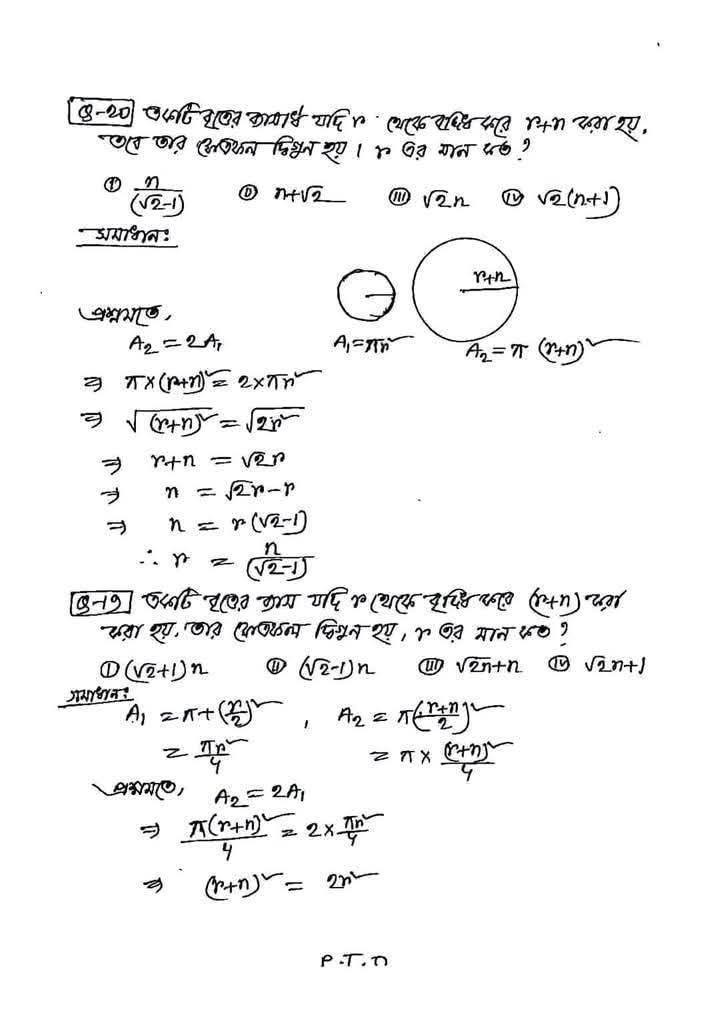 Q-20 একটি বৃত্তের ব্যাসার্ধ যদি r থেকে বৃদ্ধি করে r+n করা হয়,
তবে তার ক্ষেত্রফল দ্বিগুন হয়। r এর মান কত?
i n/(√2-1) ii n+√2 iii √2n iv √2(n+1)
সমাধান:
r+n
প্রশ্নমতে,
A₂ = 2A₁
A₁ = πr²
A₂ = π (r+n)²
⇒ π×(r+n)² = 2×πr²
⇒ √(r+n)² = √2r²
⇒ r+n = √2r
⇒ n = √2r-r
⇒ n = r(√2-1)
∴ r = n/(√2-1)
Q-19 একটি বৃত্তের ব্যাস যদি r থেকে বৃদ্ধি করে (r+n) করা
করা হয়, তার ক্ষেত্রফল দ্বিগুন হয়, r এর মান কত?
i (√2+1)n ii (√2-1)n iii √2n+n iv √2n+1
সমাধান:
A₁ = π+(r/2)² , A₂ = π(r+n/2)²
= πr²/4 = π× (r+n)²/4
প্রশ্নমতে, A₂ = 2A₁
⇒ π(r+n)²/4 = 2× πr²/4
⇒ (r+n)² = 2r²
P.T.O